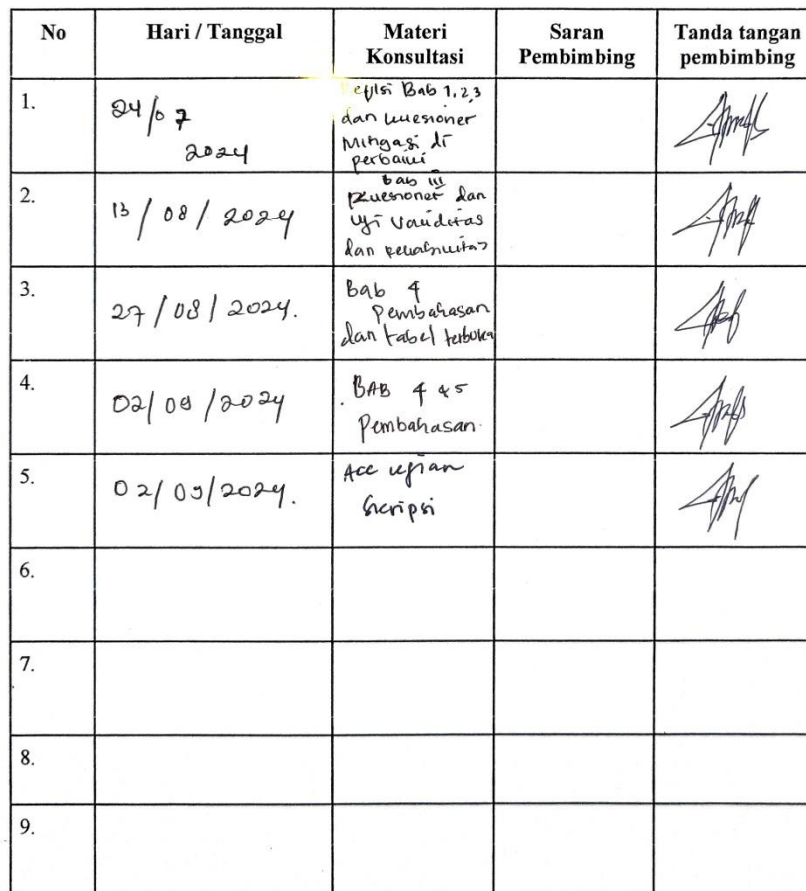 No Hari / Tanggal Materi Konsultasi Saran Pembimbing Tanda tangan pembimbing
1. 24/07 2024
Refisi Bab 1,2,3
dan kuesioner
Mitigasi di
perbaiki
2. 13/08/2024
Bab III
Kuesioner dan
Uji Validitas
dan reliabilitas
3. 27/08/2024.
Bab 4
Pembahasan
dan tabel terbuka
4. 02/09/2024
BAB 4 & 5
Pembahasan.
5. 02/09/2024.
Acc ujian
Skripsi
6.
7.
8.
9.